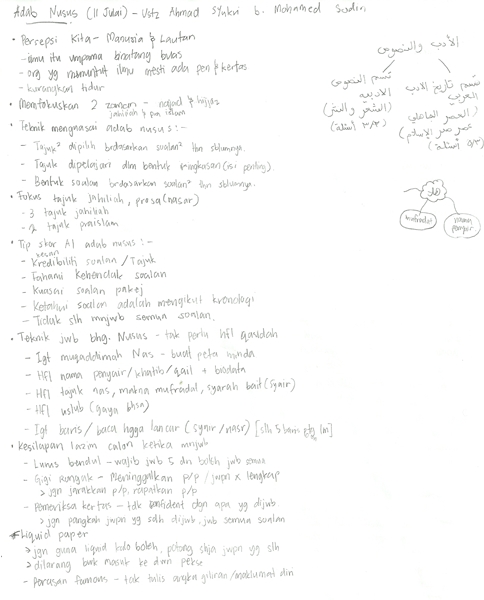 Adab Nusus (11 Julai) - Ustz Ahmad Syukri b. Mohamed Sudiri
• Persepsi kita - Manusia & Lautan
- ilmu itu umpama binatang buas
- org yg menuntut ilmu mesti ada pen & kertas
- kurangkan tidur
• Memfokuskan 2 zaman -
jahiliah & pra islam
• Teknik menguasai adab nusus :-
- Tajuk² dipilih brdasarkan soalan² thn sblumnya.
- Tajuk dipelajari dlm bentuk ringkasan (isi penting).
- Bentuk soalan brdasarkan soalan² thn sblumnya.
• Fokus tajuk jahiliah, prosa (nasar)
- 3 tajuk jahiliah
- 2 tajuk praislam
• Tip skor A1 adab nusus :-
- Kredibiliti soalan / Tajuk
- Fahami kehendak soalan
- Kuasai soalan pakej
- Ketahui soalan adalah mengikut kronologi
- Tidak slh mnjwb semua soalan.
• Teknik jwb bhg. Nusus - tak perlu hfl qasidah
- Igt muqaddimah Nas - buat peta minda
- Hfl nama penyair / khatib / qail + biodata
- Hfl tajuk nas, makna mufradat, syarah bait (syair)
- Hfl uslub (gaya bhsa)
- Igt baris / baca hgga lancar (syair / nasr) [slh 5 baris
• Kesilapan lazim calon ketika mnjwb
- Lurus bendul - wajib jwb 5 dn boleh jwb semua
- Gigi rongak - Meninggalkan p/p / jwpn x lengkap
> jgn jarakkan p/p, rapatkan p/p
- Pemeriksa kertas - tdk confident dgn apa yg dijwb
> jgn pangkah jwpn yg sdh dijwb, jwb semua soalan
- Liquid paper
> jgn guna liquid kalo boleh, potong shja jwpn yg slh
> dilarang bwk masuk ke dlm peksa
- Perasan famous - tak tulis angka giliran / maklumat diri
الأدب والنصوص
قسم النصوص
الأدبية
(الشعر والنثر)
(٣/٣ أسئلة)
قسم تاريخ الأدب
العربي
(العصر الجاهلي
عصر صدر الإسلام)
mufradat
nama
penyair